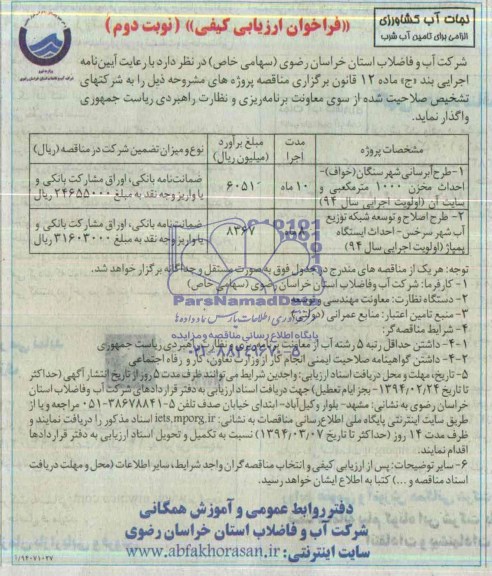 نجات آب کشاورزی
الزامی برای تامین آب شرب
«فراخوان ارزیابی کیفی» (نوبت دوم)
شرکت آب و فاضلاب استان خراسان رضوی (سهامی خاص) در نظر دارد با رعایت آیین‌نامه
اجرایی بند «ج» ماده ۱۲ قانون برگزاری مناقصه پروژه های مشروحه ذیل را به شرکتهای
تشخیص صلاحیت شده از سوی معاونت برنامه‌ریزی و نظارت راهبردی ریاست جمهوری
واگذار نماید.
مشخصات پروژه
مدت اجرا
مبلغ برآورد (میلیون ریال)
نوع و میزان تضمین شرکت در مناقصه (ریال)
۱- طرح آبرسانی شهر سنگان (خواف)-
احداث مخزن ۱۰۰۰ مترمکعبی و
سایت آن (اولویت اجرایی سال ۹۴)
۱۰ ماه
۶۰۵۱
ضمانت‌نامه بانکی، اوراق مشارکت بانکی و
یا واریز وجه نقد به مبلغ ۲۴۶۵۵۰۰۰۰ ریال
۲- طرح اصلاح و توسعه شبکه توزیع
آب شهر سرخس- احداث ایستگاه
پمپاژ (اولویت اجرایی سال ۹۴)
۸ ماه
۸۳۶۷
ضمانت‌نامه بانکی، اوراق مشارکت بانکی و
یا واریز وجه نقد به مبلغ ۳۱۶۰۳۰۰۰۰ ریال
توجه: هر یک از مناقصه های مندرج در جدول فوق به صورت مستقل و جداگانه برگزار خواهد شد.
۱- کارفرما: شرکت آب و فاضلاب استان خراسان رضوی (سهامی خاص)
۲- دستگاه نظارت: معاونت مهندسی و توسعه
۳- منبع تامین اعتبار: منابع عمرانی (دولتی)
۴- شرایط مناقصه‌گر:
۴-۱- داشتن حداقل رتبه ۵ رشته آب از معاونت برنامه‌ریزی و نظارت راهبردی ریاست جمهوری
۴-۲- داشتن گواهینامه صلاحیت ایمنی انجام کار از وزارت تعاون، کار و رفاه اجتماعی
۵- تاریخ، مهلت و محل دریافت اسناد ارزیابی: واجدین شرایط می توانند ظرف مدت ۵ روز از تاریخ انتشار آگهی (حداکثر
تا تاریخ ۱۳۹۴/۰۲/۲۴- بجز ایام تعطیل) جهت دریافت اسناد ارزیابی به دفتر قراردادهای شرکت آب و فاضلاب استان
خراسان رضوی به نشانی: مشهد- بلوار وکیل‌آباد- ابتدای خیابان صدف تلفن ۵-۳۸۶۷۸۸۴۱-۰۵۱ مراجعه و یا از
طریق سایت اینترنتی پایگاه ملی اطلاع‌رسانی مناقصات به نشانی: iets.mporg.ir اسناد مذکور را دریافت نمایند و
ظرف مدت ۱۴ روز (حداکثر تا تاریخ ۱۳۹۴/۰۳/۰۷) نسبت به تکمیل و تحویل اسناد ارزیابی به دفتر قراردادها
اقدام نمایند.
۶- سایر توضیحات: پس از ارزیابی کیفی و انتخاب مناقصه‌گران واجد شرایط، سایر اطلاعات (محل و مهلت دریافت
اسناد مناقصه و ...) کتبا به اطلاع ایشان خواهد رسید.
دفتر روابط عمومی و آموزش همگانی
شرکت آب و فاضلاب استان خراسان رضوی
سایت اینترنتی: www.abfakhorasan.ir
ParsNamadData
پایگاه اطلاع رسانی مناقصه و مزایده
۰۲۱-۸۸۳۴۹۶۷۰-۵